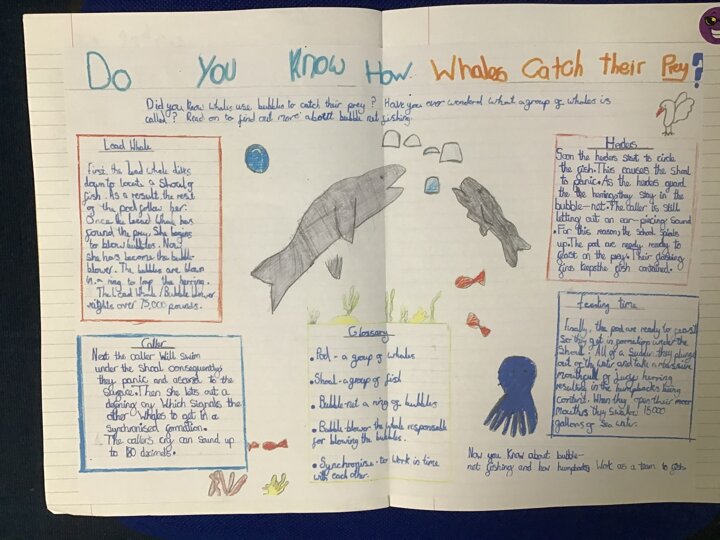 Do You Know How Whales Catch their Prey?
Did you know whales use bubbles to catch their prey? Have you ever wonderd what a group of whales is
called? Read on to find out more about bubble net fishing.
Lead Whale
First the lead whale dives
down to locate a shoal of
fish. As a result the rest
of the pod follow her.
Once the lead whale has
found the prey. She begins
to blow bubbles. Now
she has become the bubble
blower. The bubbles are blown
in a ring to trap the herring.
The Lead Whale / Bubble blower
weights over 75,000 pounds.
Caller
Next the caller will swim
under the shoal consequently
they panic and ascend to the
surface. Then she lets out a
defening cry which signals the
other whales to get in a
synchronised formation.
The callers cry can sound up
to 180 decimals.
Glossary
Pod - a group of whales
Shoal - a group of fish
• Bubble-net a ring of bubbles
• Bubble-blower the whale responsible
for blowing the bubbles.
• Synchronise - to work in time
with each other.
Herders
Soon the herders start to circle
the fish. This causes the shoal
to panic. As the herders guard
the the herring, they stay in the
bubble-net. The caller is still
letting out an ear-piercing sound
. For this reason, the school spirals
up. The pod are ready ready to
feast on the prey. Their flashing
fins keeps the fish contained.
Feeding time
Finally, the pod are ready to feast
so they get in formation under the
shoal. All of a sudden they plunge
out of the water and take a massive
mouthfull of juicy herring
resulting in the humpbacks being
content. When they open their
mouths they swallow 15,000
gallons of sea water.
Now you know about bubble-
net fishing and how humpbacks work as a team to fish.